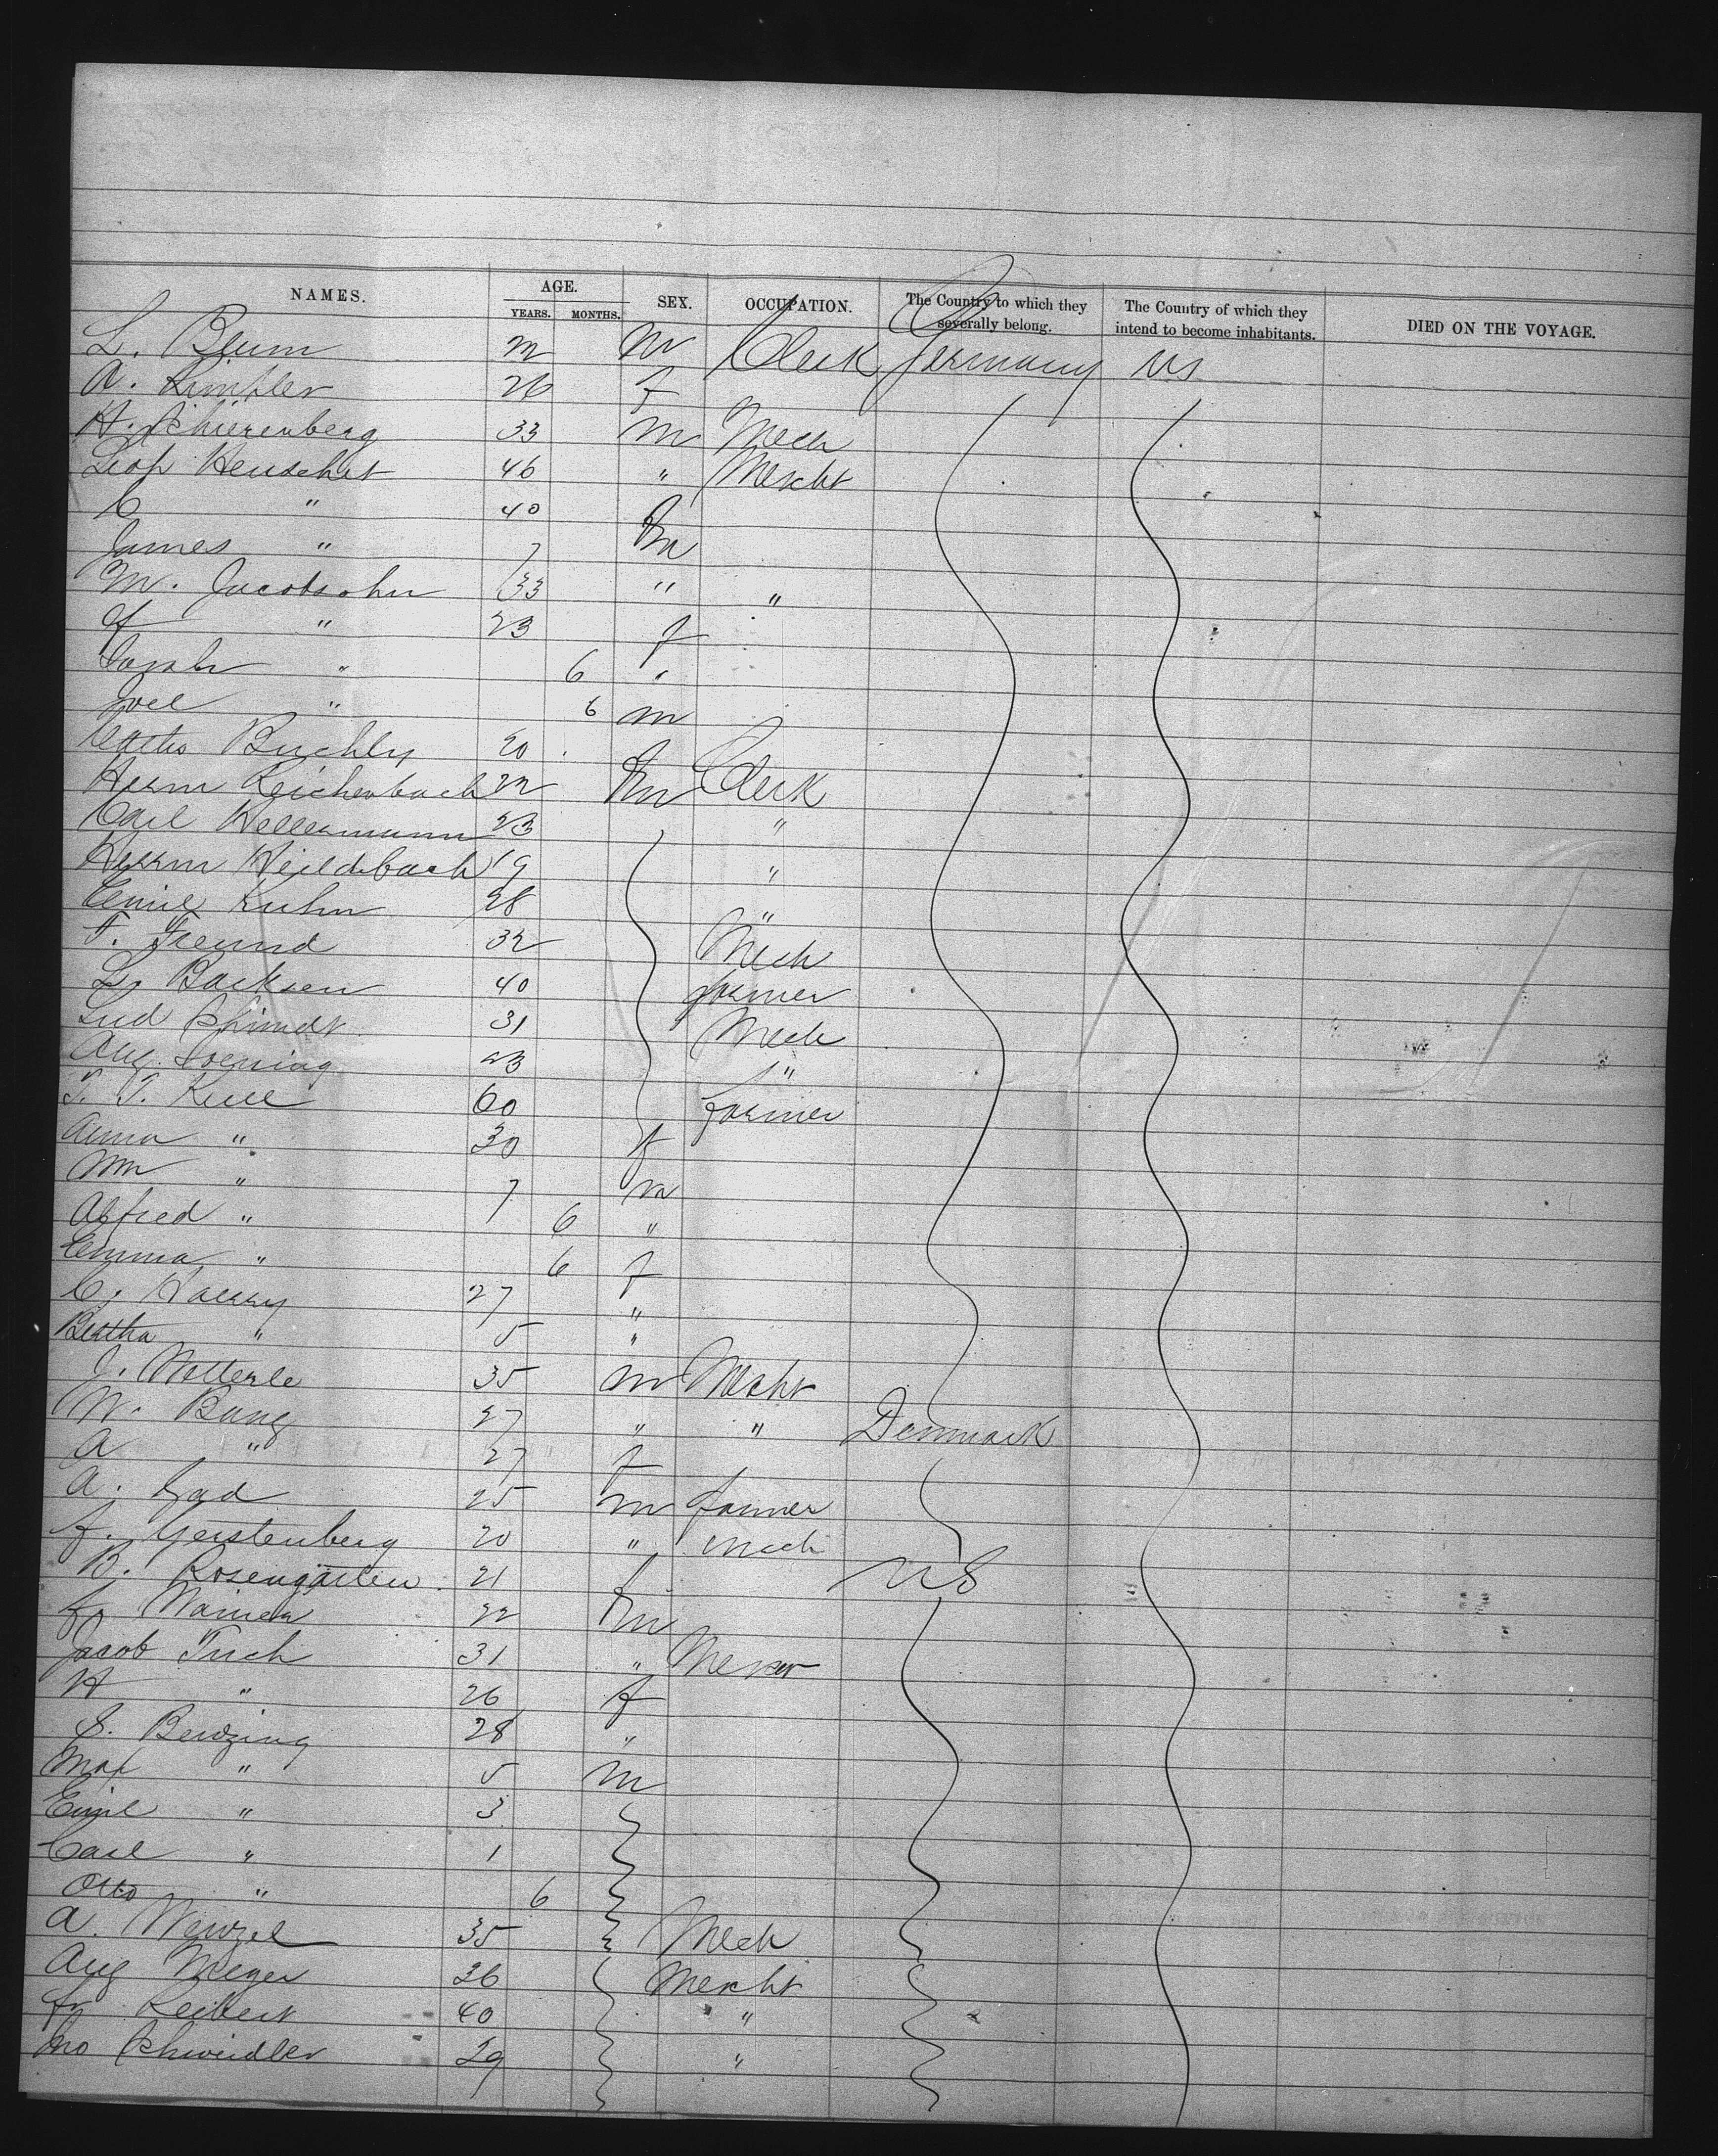 NAMES. AGE. YEARS. MONTHS. SEX. OCCUPATION. The Country to which they severally belong. The Country of which they intend to become inhabitants. DIED ON THE VOYAGE.
L. Blum 22 m Clerk Germany US
A. Rimpler 26 f
H. Schierenberg 33 m Mech
Leop Henschel 46 " Mercht
C " 40 f
James " 7 m
M. Jacobsohn 33 " "
f " 23 f
Sarah " 6 "
Joel " 6 m
Buchly 20 f
Herm Reichenbach 22 m Clerk
Carl Kellermann 23 "
Herrm Heildsbach 19 "
Emil Kuhn 28 "
F. Freund 32 Mech
L. Backsen 40 farmer
Lud Schmidt 31 Mech
Aug. Loening 23 "
T. T. Kull 60 farmer
Anna " 30 f
Wm " 7 m
Alfred " 6 "
Emma " 6 f
C. 27 "
Bertha " 5 "
J. Netterle 35 m Mercht
W. Bang 27 " " Denmark
A " 27 f
A. Gad 25 m farmer
F. Gerstenberg 20 " Mech
B. Rosengarten 21 f US
22 m
Jacob Tuch 31 " Mercht
H " 26 f
S. Benzing 28 "
Max " 5 m
Emil " 3
Carl " 1
Otto " 6
A. Wenzel 35 Mech
Aug Meyer 36 Mercht
Fr Reibert 40 "
Jno Schwindler 29 "